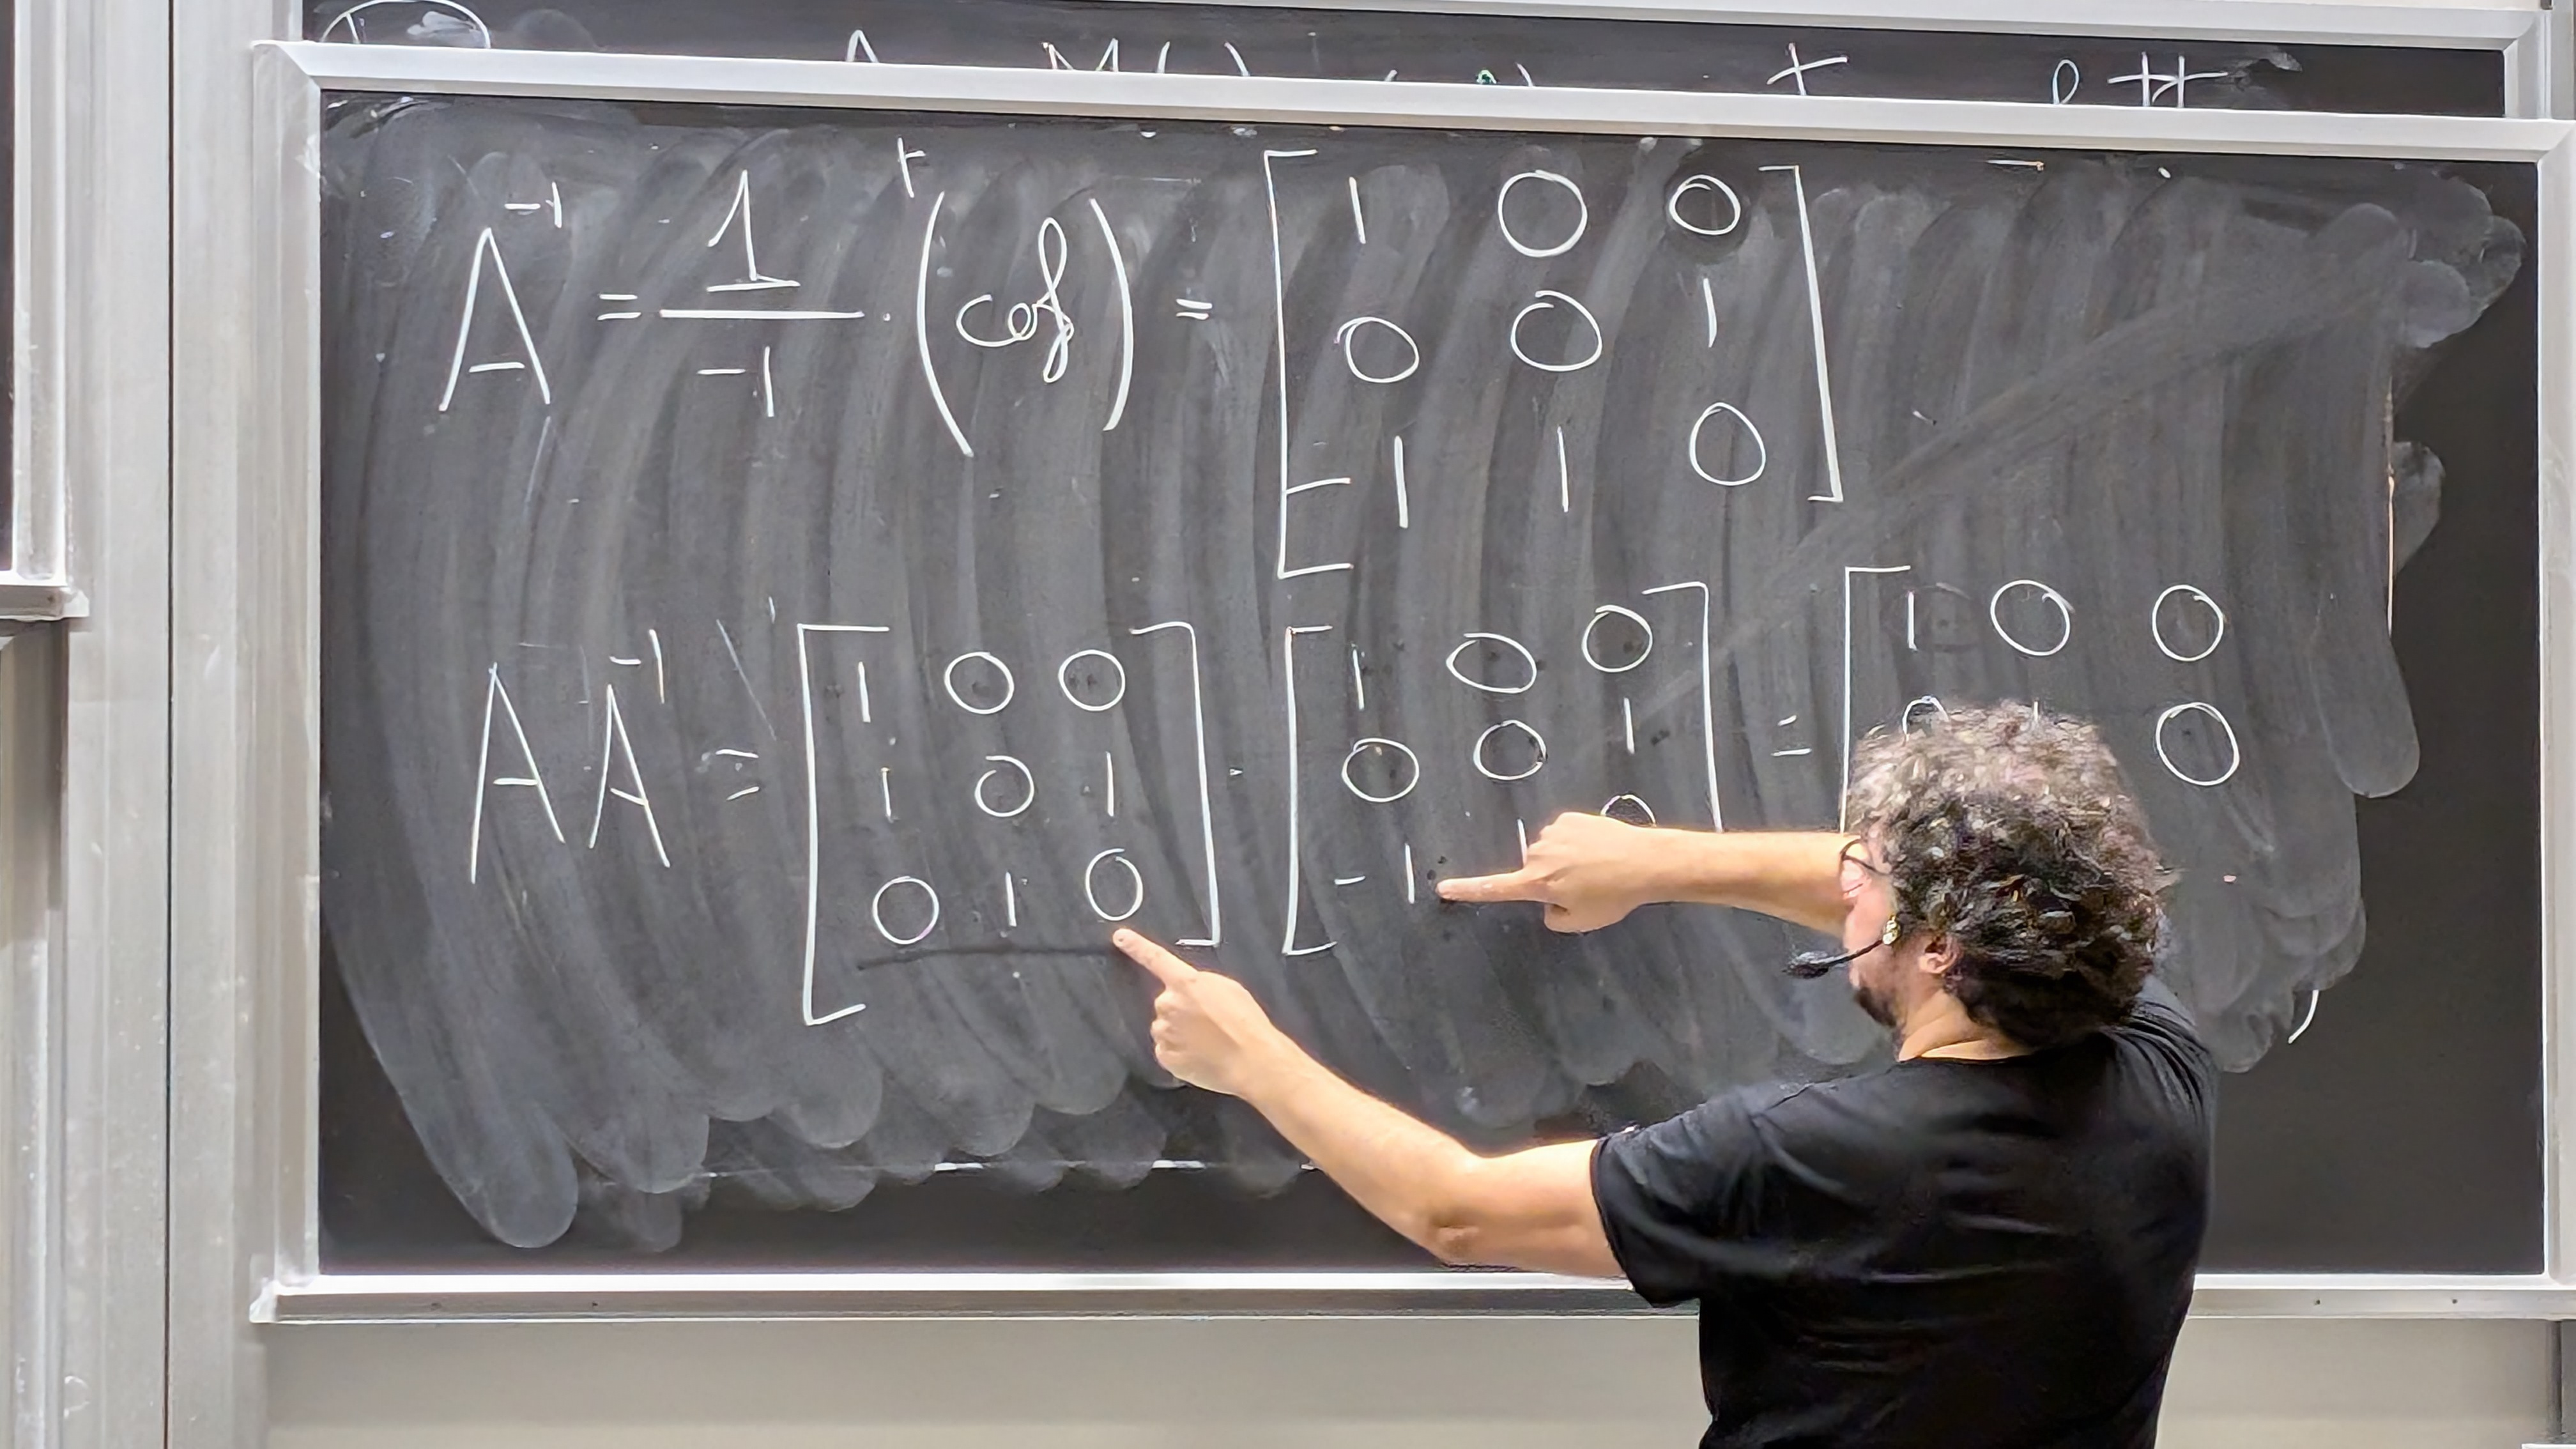 A⁻¹ = 1/-1 · ᵗ(cof) = [1 0 0
0 0 1
-1 1 0]
A A⁻¹ = [1 0 0
1 0 1
0 1 0] · [1 0 0
0 0 1
-1 1 0] = [1 0 0
0 1 0